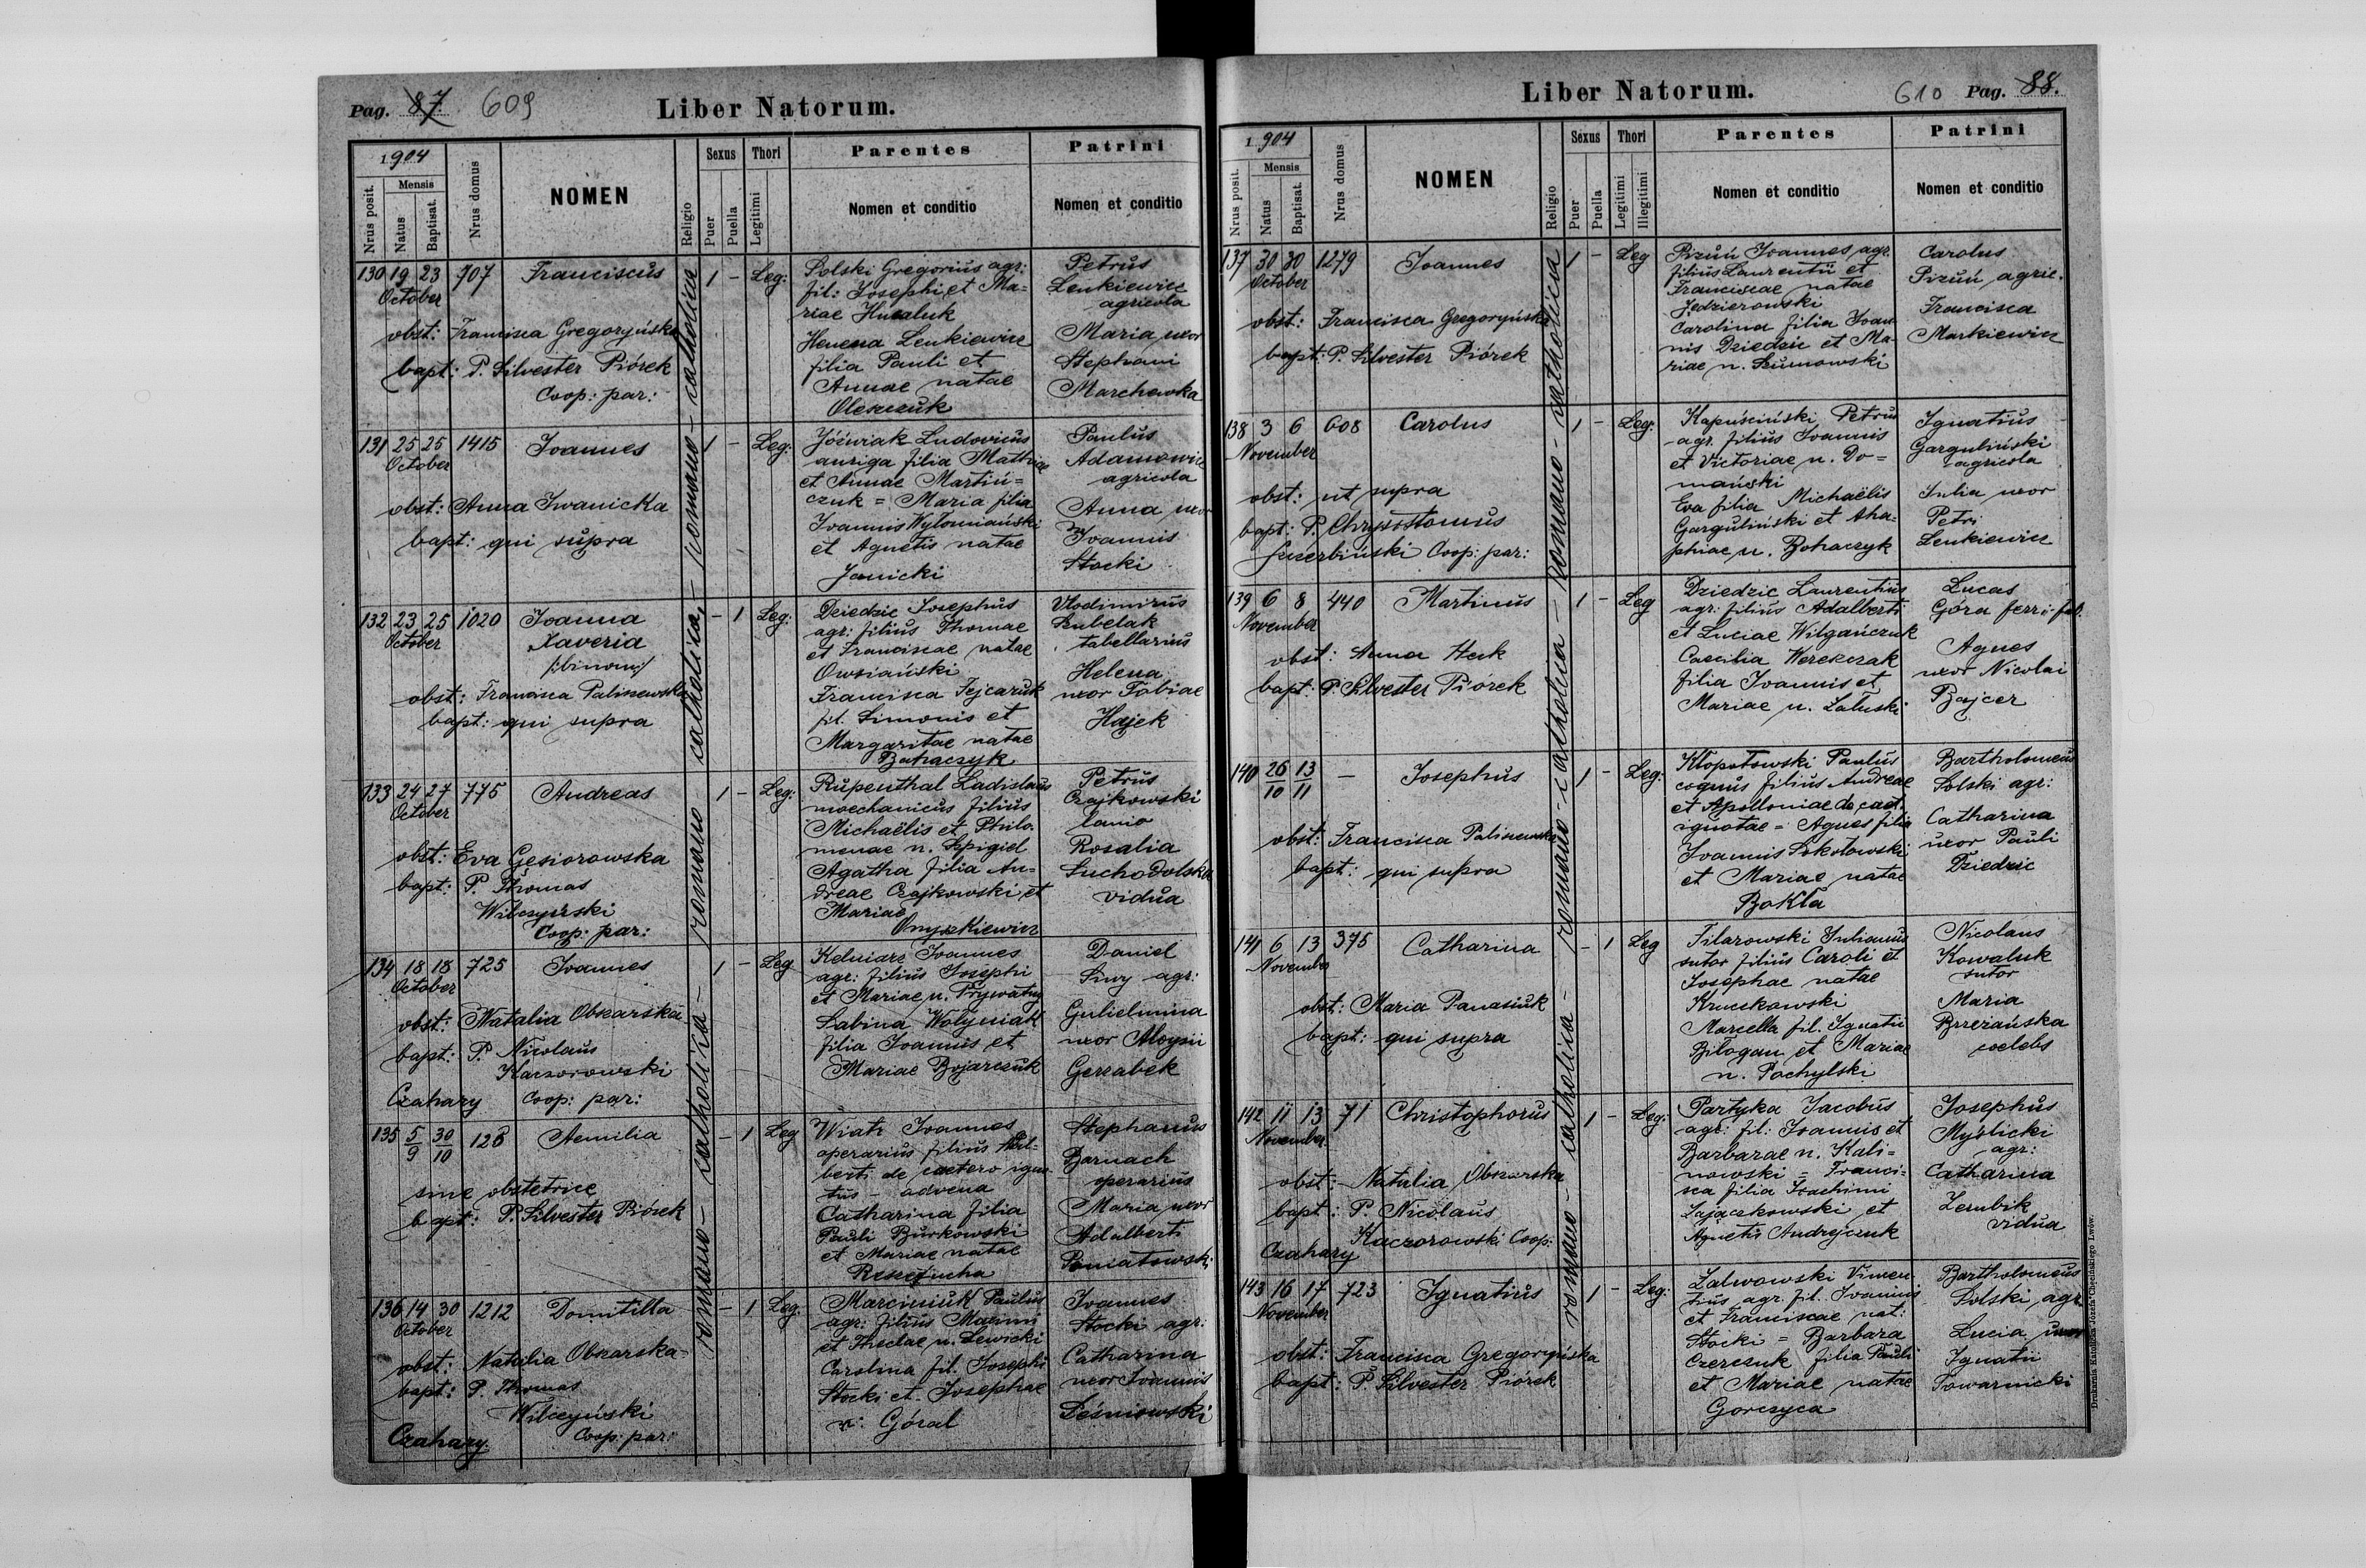 Pag. 87 609
Liber Natorum.
1904
Nrus posit.
Mensis
Natus
Baptisat.
Nrus domus
NOMEN
Religio
Sexus
Puer
Puella
Thori
Legitimi
Parentes
Nomen et conditio
Patrini
Nomen et conditio
romano-catholica - romano-catholica - romano-catholica
130 19 23 707 Franciscus 1 - Leg:
October
obst: Francisca Gregoryńska
bapt: P. Silvester Piórek
Coop: par:
Solski Gregorius agr:
fil: Josephi et Ma=
riae Husaluk
Lenkiewicz
filia Pauli et
Annae natae
Oleszczuk
Petrus
Lenkiewicz
agricola
Maria uxor
Stephani
Marchewka
131 25 25 1415 Joannes 1 - Leg:
October
obst: Anna Iwanicka
bapt: qui supra
Jóźwiak Ludovicus
auriga filia Mathiae
et Annae Martiń=
czuk = Maria filia
Joannis Wyłomiański
et Agnetis natae
Janicki
Paulus
Adamowicz
agricola
Anna uxor
Joannis
Stocki
132 23 25 1020 Joanna - 1 Leg:
October
Xaveria
/:binom:/
obst: Francisca Paliszewska
bapt: qui supra
Dziedzic Josephus
agr: filius Thomae
et Franciscae natae
Owsiański
Francisca Fejcaruk
fil. Simonis et
Margaritae natae
Bohaczyk
Vlodimirus
Kubelak
tabellarius
Helena
uxor Fabiae
Hajek
133 24 27 775 Andreas 1 - Leg:
October
obst: Eva Gęsiorowska
bapt: P. Thomas
Wilczyński
Coop: par:
Rupenthal Ladislaus
moechanicus filius
Michaëlis et Philo=
menae n. Szpigiel
Agatha filia An=
dreae Czajkowski et
Mariae
Onyszkiewicz
Petrus
Czajkowski
lanio
Rosalia
Suchodolska
vidua
134 18 18 725 Joannes 1 - Leg
October
obst: Natalia Obszarska
bapt: P. Nicolaus
Kaczorowski
Czahary Coop: par:
Kelniarz Joannes
agr: filius Josephi
et Mariae n. Prywatny
Sabina Wołyniak
filia Joannis et
Mariae Bojarczuk
Daniel
Siwy agr:
Gulielmina
uxor Aloysii
Gerzabek
135 5/9 30/10 128 Aemilia - 1 Leg
sine obstetrice
bapt: P. Silvester Piórek
Wiatr Joannes
operarius filius Adal=
berti de caetero igno=
tus - advena
Catharina filia
Pauli Burkowski
et Mariae natae
Rzeszucha
Stephanus
Barnach
operarius
Maria uxor
Adalberti
Poniatowski
136 14 30 1212 Domitilla - 1 Leg:
October
obst: Natalia Obszarska
bapt: P. Thomas
Wilczyński
Czahary. Coop: par:
Marciniuk Paulus
agr: filius Maximi
et Theclae n. Lewicki
Carolina fil. Josephi
Stocki et Josephae
n: Góral
Joannes
Stocki agr:
Catharina
uxor Joannis
Leśniowski
Liber Natorum.
610 Pag. 88.
1904
Nrus posit.
Mensis
Natus
Baptisat.
Nrus domus
NOMEN
Religio
Sexus
Puer
Puella
Thori
Legitimi
Illegitimi
Parentes
Nomen et conditio
Patrini
Nomen et conditio
romano-catholica - romano-catholica - romano-catholica
137 30 30 1279 Joannes 1 - Leg
October
obst: Francisca Gregoryńska
bapt: P. Silvester Piórek
Pizuń Joannes agr.
filius Laurentii et
Franciscae natae
Jędzierowski
Carolina filia Joan=
nis Dziedzic et Ma=
riae n. Szumowski
Carolus
Pizuń agric.
Francisca
Markiewicz
138 3 6 608 Carolus 1 - Leg:
November
obst: ut supra
bapt: P. Chrysostomus
Szczerbiński Coop: par:
Kapuściński Petrus
agr. filius Joannis
et Victoriae n. Do=
mański
Eva filia Michaëlis
Garguliński et Aha=
phiae n. Bohaczyk
Ignatius
Garguliński
agricola
Julia uxor
Petri
Lenkiewicz
139 6 8 440 Martinus 1 - Leg
November
obst: Anna Heck
bapt: P. Silvester Piórek
Dziedzic Laurentius
agr: filius Adalberti
et Luciae Wilgańczuk
Caecilia Wereszczak
filia Joannis et
Mariae n. Załuski
Lucas
Góra ferri-fab:
Agnes
uxor Nicolai
Bajcer
140 26/10 13/11 - Josephus 1 - Leg:
obst: Francisca Paliszewska
bapt: qui supra
Kłopotowski Paulus
coquus filius Andreae
et Apolloniae de caet.
ignotae = Agnes filia
Joannis Sokołowski
et Mariae natae
Bakla
Bartholomeus
Solski agr:
Catharina
uxor Pauli
Dziedzic
141 6 13 375 Catharina - 1 Leg
November
obst: Maria Panasiuk
bapt: qui supra
Filarowski Julianus
sutor filius Caroli et
Josephae natae
Kruczkowski
Marcella fil. Ignatii
Biłogan et Mariae
n. Pochylski
Nicolaus
Kowaluk
sutor
Maria
Brzeżańska
coelebs
142 11 13 71 Christophorus 1 - Leg:
November
obst: Natalia Obszarska
bapt: P. Nicolaus
Kaczorowski Coop:
Czahary
Partyka Jacobus
agr: fil: Joannis et
Barbarae n. Kali=
nowski = Franci=
sca filia Joachimi
Zajączkowski et
Agnetis Andrejczuk
Josephus
Myślicki
agr:
Catharina
Zerubik
vidua
143 16 17 723 Ignatius 1 - Leg:
November
obst: Francisca Gregoryńska
bapt: P. Silvester Piórek
Zalwowski Vincen=
tius agr. fil. Joannis
et Franciscae nat:
Stocki = Barbara
Czerczuk filia Pauli
et Mariae natae
Gorczyca
Bartholomeus
Solski agr.
Lucia uxor
Ignatii
Towarnicki
Drukarnia Katolicka Józefa Chęcińskiego Lwów.